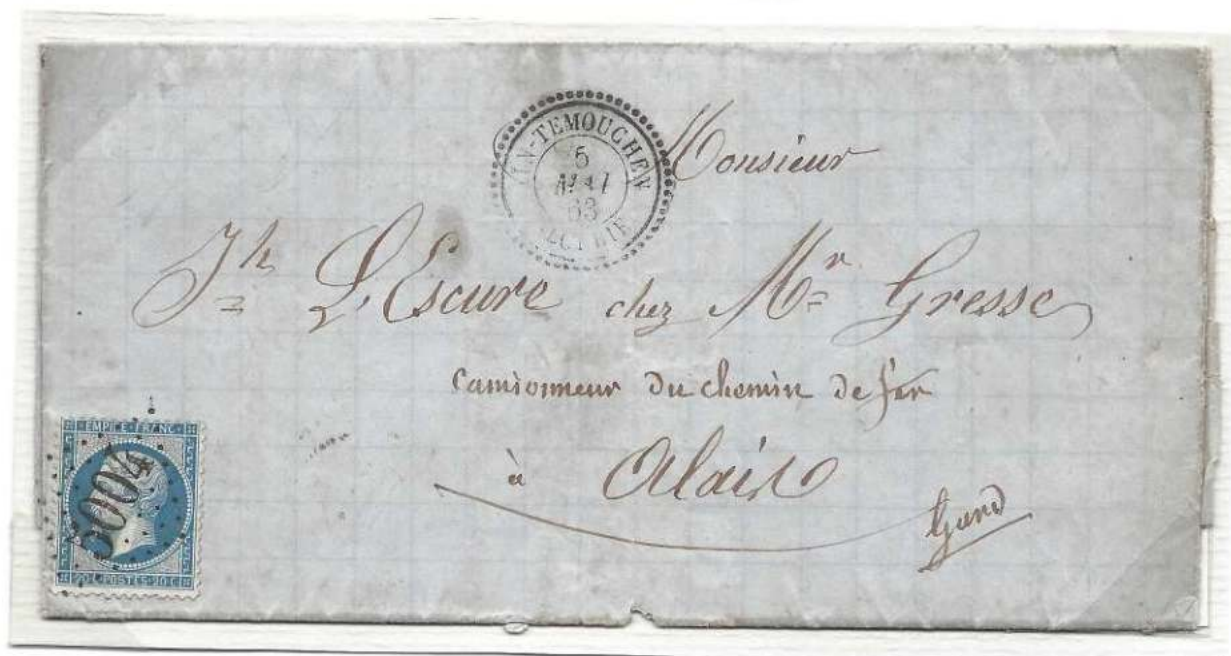 AIN-TEMOUCHEN
5
MAI
63
ALGERIE
Monsieur
Jh L'Escure chez Mr Gresse
Camionneur du chemin de fer
à Alais
Gard
EMPIRE FRANC
5004
20 C POSTES 20 C